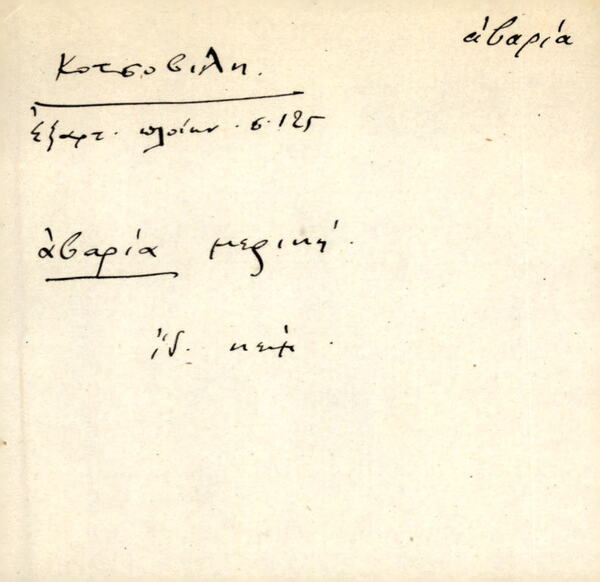 ἀβαρία
Κοτσοβίλη.
ἐξαρτ. πλοίων. σ. 125
ἀβαρία μερική.
ἰδ. κειμ.